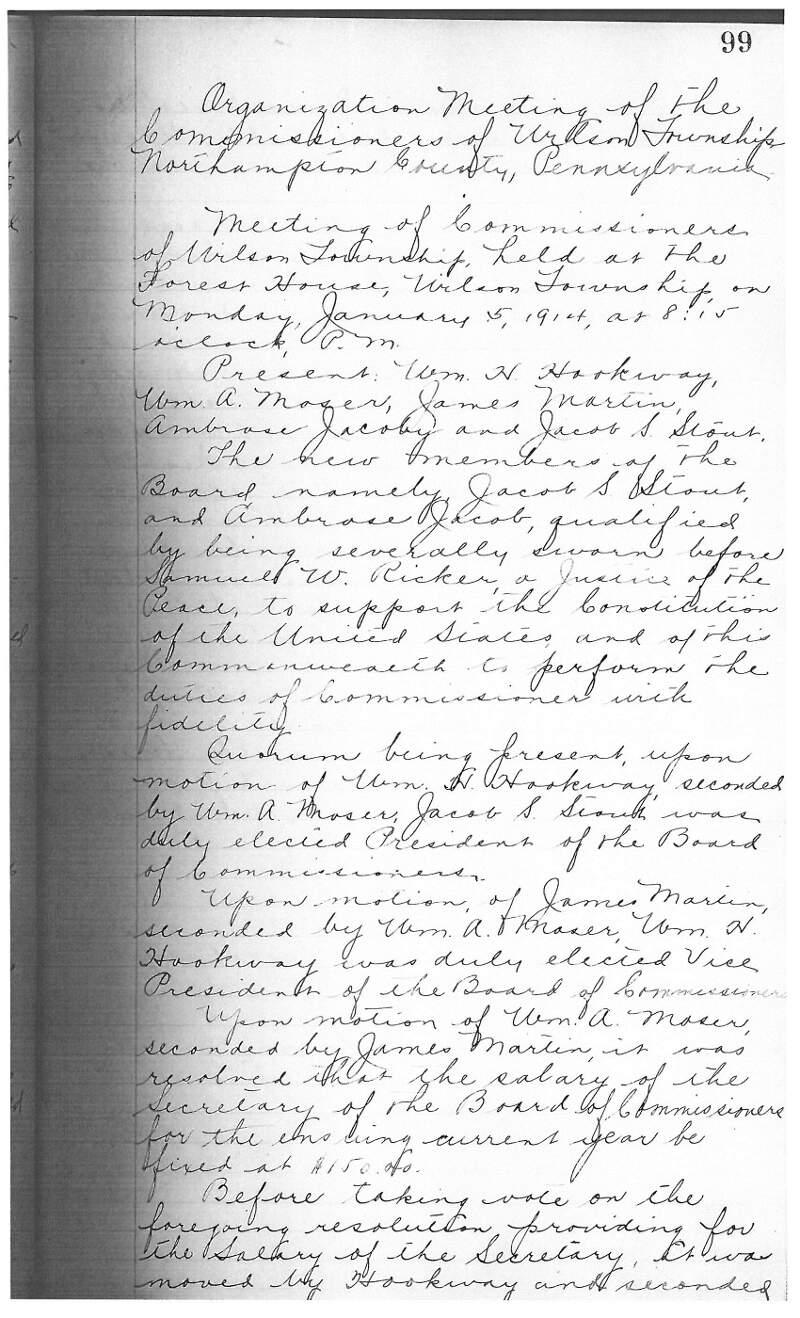 99
Organization Meeting of the
Commissioners of Wilson Township
Northampton County, Pennsylvania.
Meeting of Commissioners
of Wilson Township, held at the
Forest House, Wilson Township, on
Monday, January 5, 1914, at 8:15
oclock, P.M.
Present: Wm. H. Hookway,
Wm. A. Moser, James Martin,
Ambrose Jacoby and Jacob S. Stout.
The new members of the
Board namely, Jacob S Stout,
and Ambrose Jacob, qualified
by being severally sworn before
Samuel W. Ricker, a Justice of the
Peace, to support the Constitution
of the United States, and of this
Commonwealth to perform the
duties of Commissioner with
fidelity.
Quorum being present, upon
motion of Wm. H. Hookway, seconded
by Wm. A. Moser, Jacob S. Stout was
duly elected President of the Board
of Commissioners.
Upon motion, of James Martin,
seconded by Wm. A. Moser, Wm. H.
Hookway was duly elected Vice
President of the Board of Commissioners
Upon motion of Wm. A. Moser,
seconded by James Martin, it was
resolved that the salary of the
Secretary of the Board of Commissioners
for the ensuing current year be
fixed at $150.00.
Before taking vote on the
foregoing resolution providing for
the Salary of the Secretary, it was
moved by Hookway and seconded